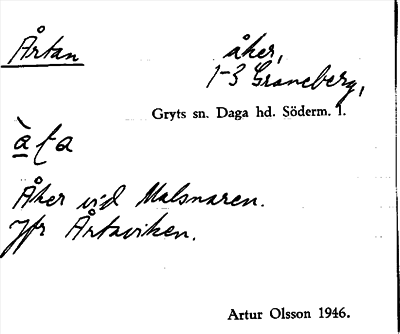 Årtan
åker,
1-3 Graneberg,
Gryts sn. Daga hd. Söderm. l.
Åker vid Malsnaren.
Jfr Årtaviken.
Artur Olsson 1946.